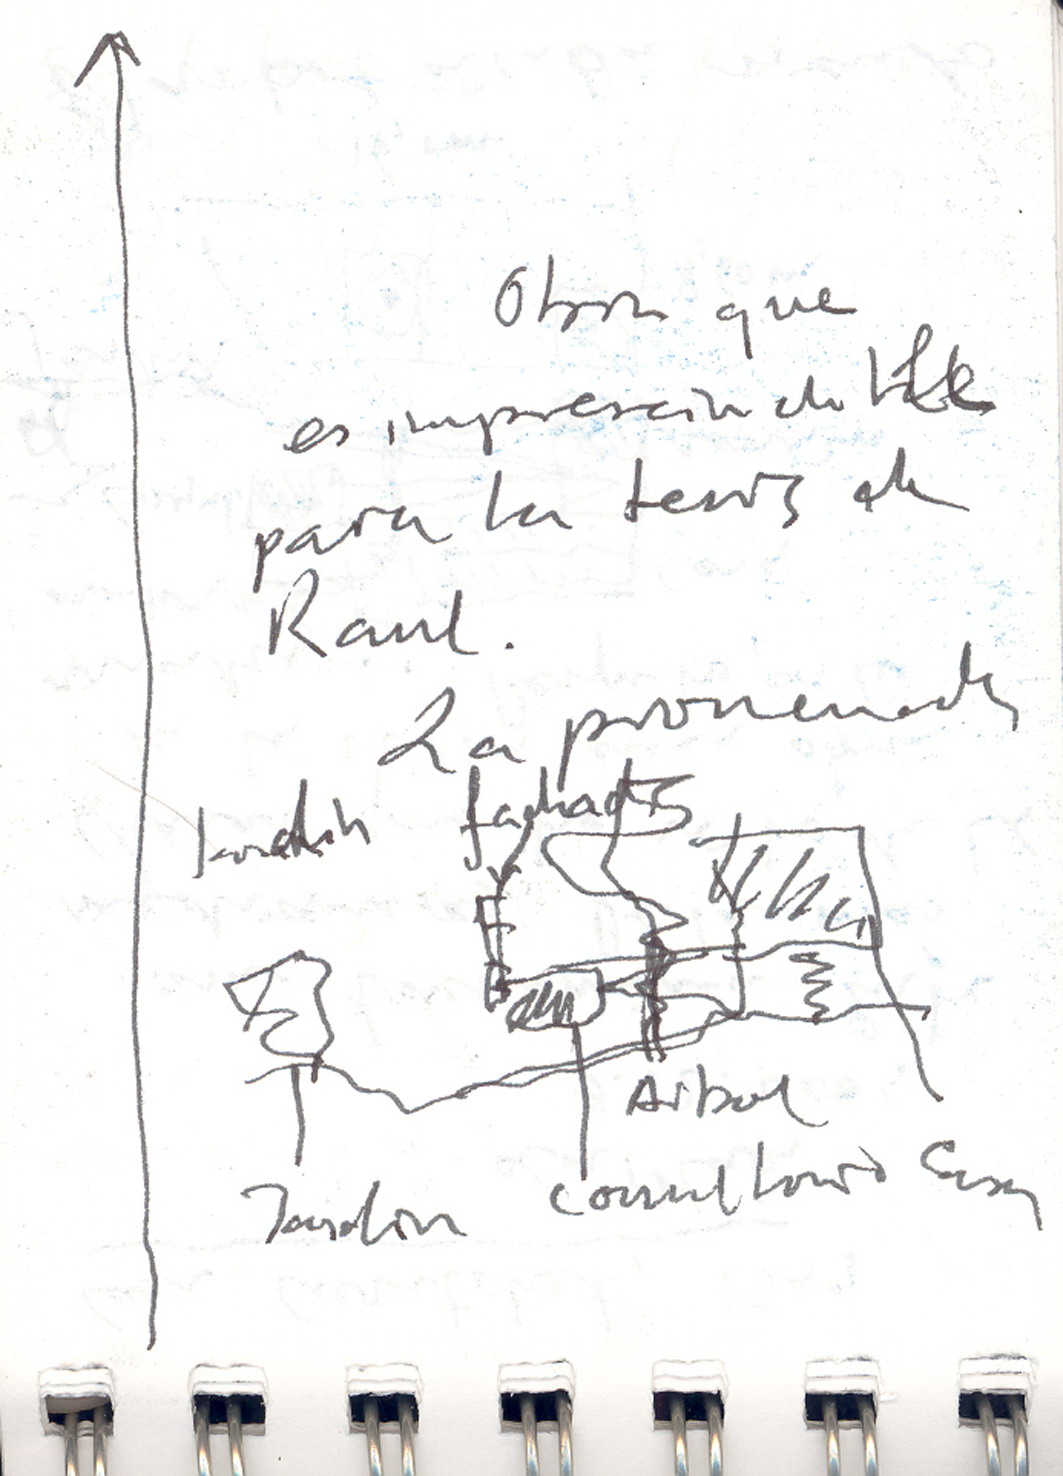 Obra que
es imprescindible
para la tesis de
Raul.
La promenade
jardin fachadas
Arbol
Jardin consultorio Casa